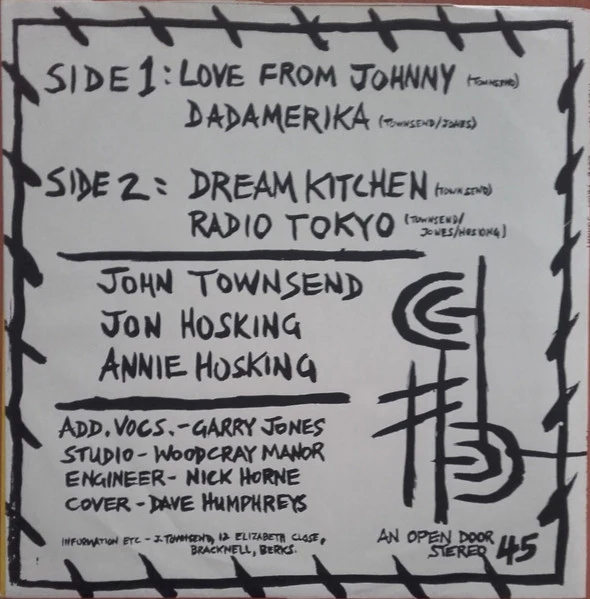 SIDE 1: LOVE FROM JOHNNY (TOWNSEND)
DADAMERIKA (TOWNSEND/JONES)
SIDE 2: DREAM KITCHEN (TOWNSEND)
RADIO TOKYO (TOWNSEND/
JONES/HOSKING)
JOHN TOWNSEND
JON HOSKING
ANNIE HOSKING
ADD. VOCS. - GARRY JONES
STUDIO - WOODCRAY MANOR
ENGINEER - NICK HORNE
COVER - DAVE HUMPHREYS
INFORMATION ETC - J. TOWNSEND, 12 ELIZABETH CLOSE,
BRACKNELL, BERKS.
AN OPEN DOOR
STEREO 45